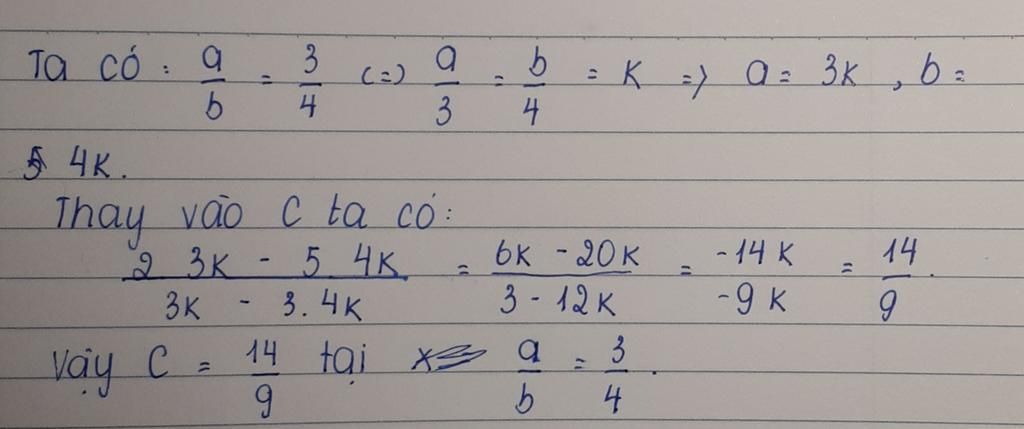 Ta có: a/b = 3/4 (=) a/3 = b/4 = K => a = 3K, b =
4K.
Thay vào C ta có:
2 3K - 5 4K / 3K - 3.4K = 6K - 20K / 3 - 12K = -14K / -9K = 14/9.
Vậy C = 14/9 tại a/b = 3/4.